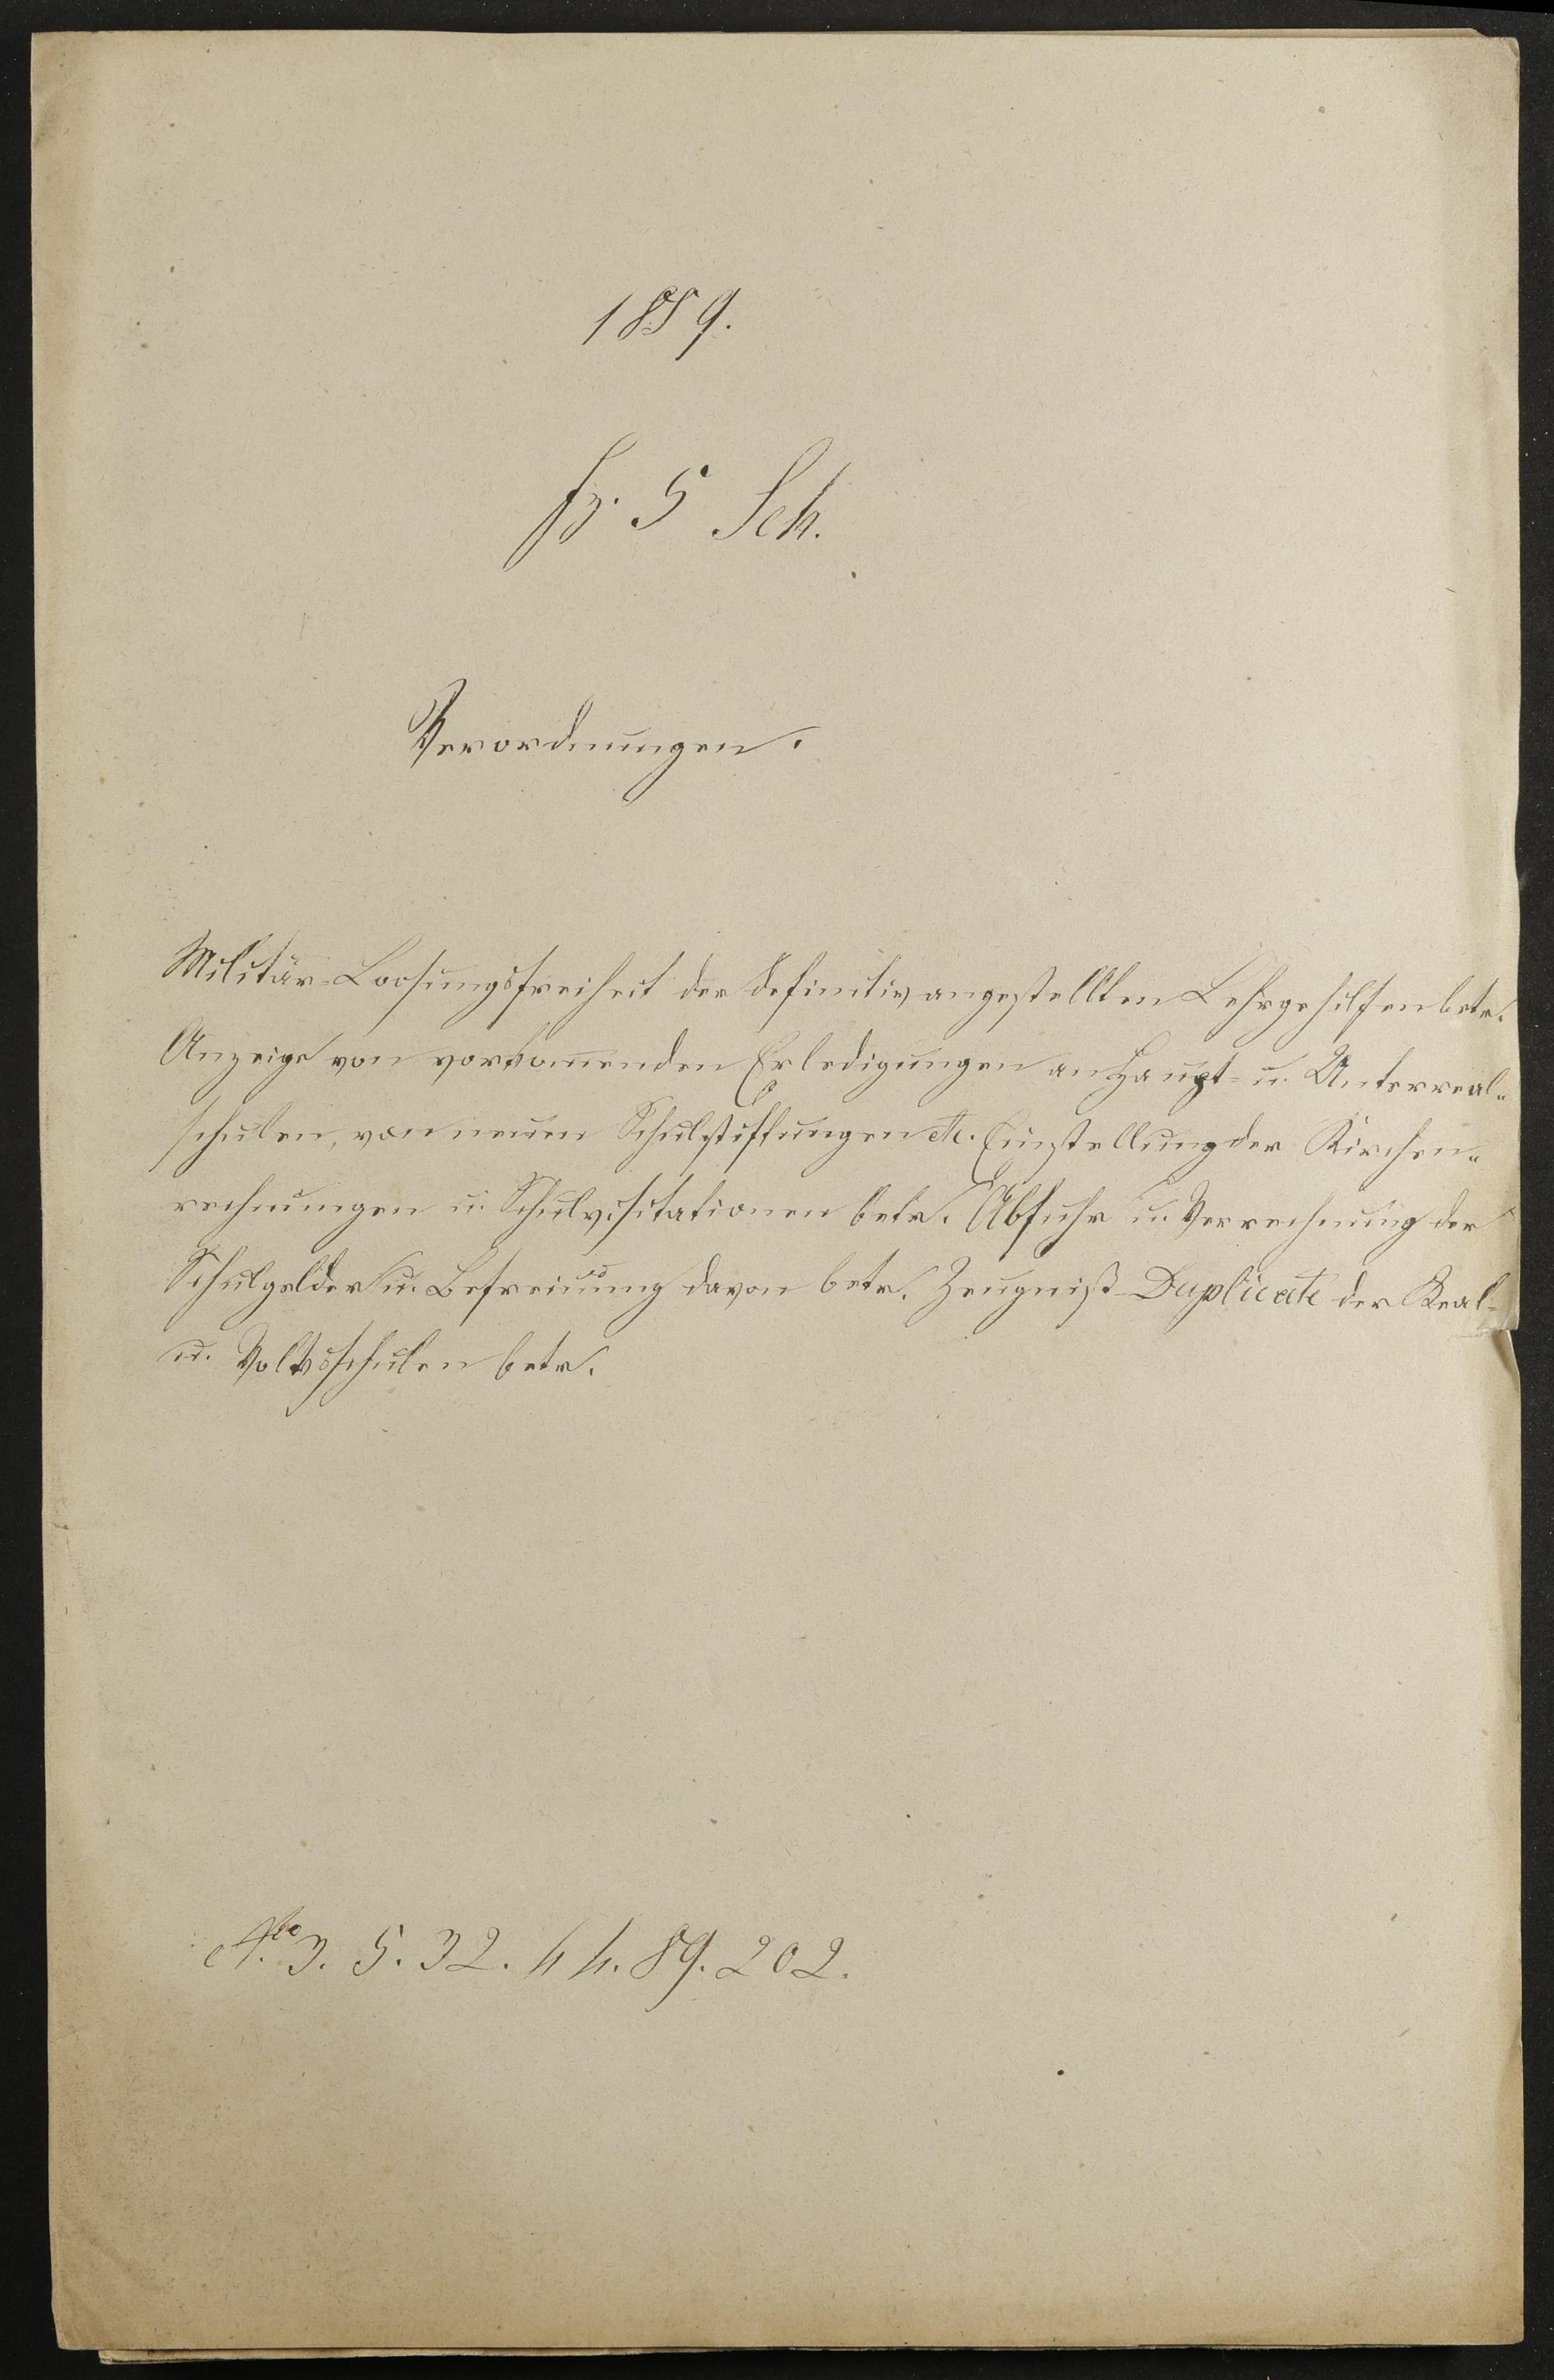 1859.
fz. 5 Sch.
Verordnungen.
Militär-Loosungsfreiheit der definitiv angestellten Lehrgehilfen betr.
Anzeige von vorkommenden Erledigungen an Haupt- u. Unterreal-
schulen, von neuen Schulstiftungen etc. Einstellung der Kirchen-
rechnungen u. Schulvisitationen betr. Abfuhr u. Verrechnung der
Schulgelder u. Befreiung davon betr. Zeugniß-Duplicate der Real-
u. Volksschulen betr.
3. 5. 32. 44. 89. 202.